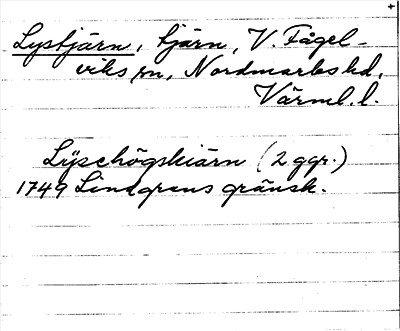 Lystjärn, tjärn, V. Fågel-
viks sn, Nordmarks hd,
Värml. l.
Lÿsehögskiärn (2 ggr.)
1749 Lindgrens gränsk.